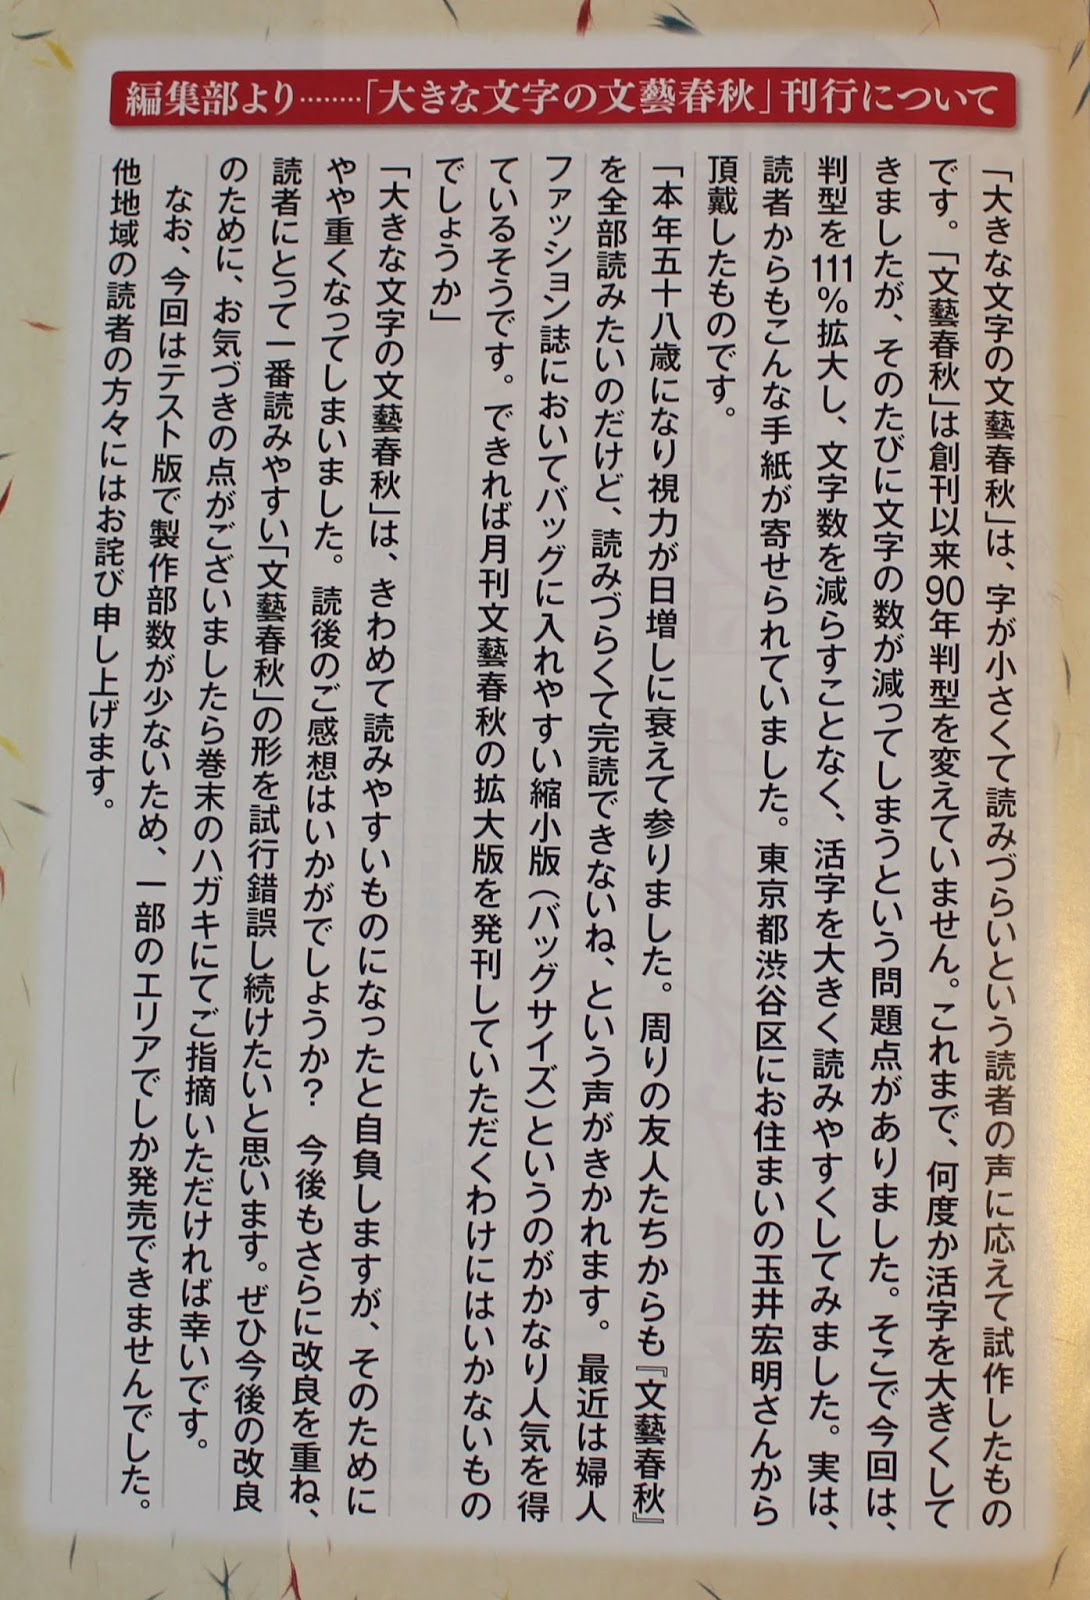 編集部より………「大きな文字の文藝春秋」刊行について
「大きな文字の文藝春秋」は、字が小さくて読みづらいという読者の声に応えて試作したもの
です。「文藝春秋」は創刊以来90年判型を変えていません。これまで、何度か活字を大きくして
きましたが、そのたびに文字の数が減ってしまうという問題点がありました。そこで今回は、
判型を111%拡大し、文字数を減らすことなく、活字を大きく読みやすくしてみました。実は、
読者からもこんな手紙が寄せられていました。東京都渋谷区にお住まいの玉井宏明さんから
頂戴したものです。
「本年五十八歳になり視力が日増しに衰えて参りました。周りの友人たちからも『文藝春秋』
を全部読みたいのだけど、読みづらくて完読できないね、という声がきかれます。最近は婦人
ファッション誌においてバッグに入れやすい縮小版（バッグサイズ）というのがかなり人気を得
ているそうです。できれば月刊文藝春秋の拡大版を発刊していただくわけにはいかないもの
でしょうか」
「大きな文字の文藝春秋」は、きわめて読みやすいものになったと自負しますが、そのために
やや重くなってしまいました。読後のご感想はいかがでしょうか？　今後もさらに改良を重ね、
読者にとって一番読みやすい「文藝春秋」の形を試行錯誤し続けたいと思います。ぜひ今後の改良
のために、お気づきの点がございましたら巻末のハガキにてご指摘いただければ幸いです。
なお、今回はテスト版で製作部数が少ないため、一部のエリアでしか発売できませんでした。
他地域の読者の方々にはお詫び申し上げます。